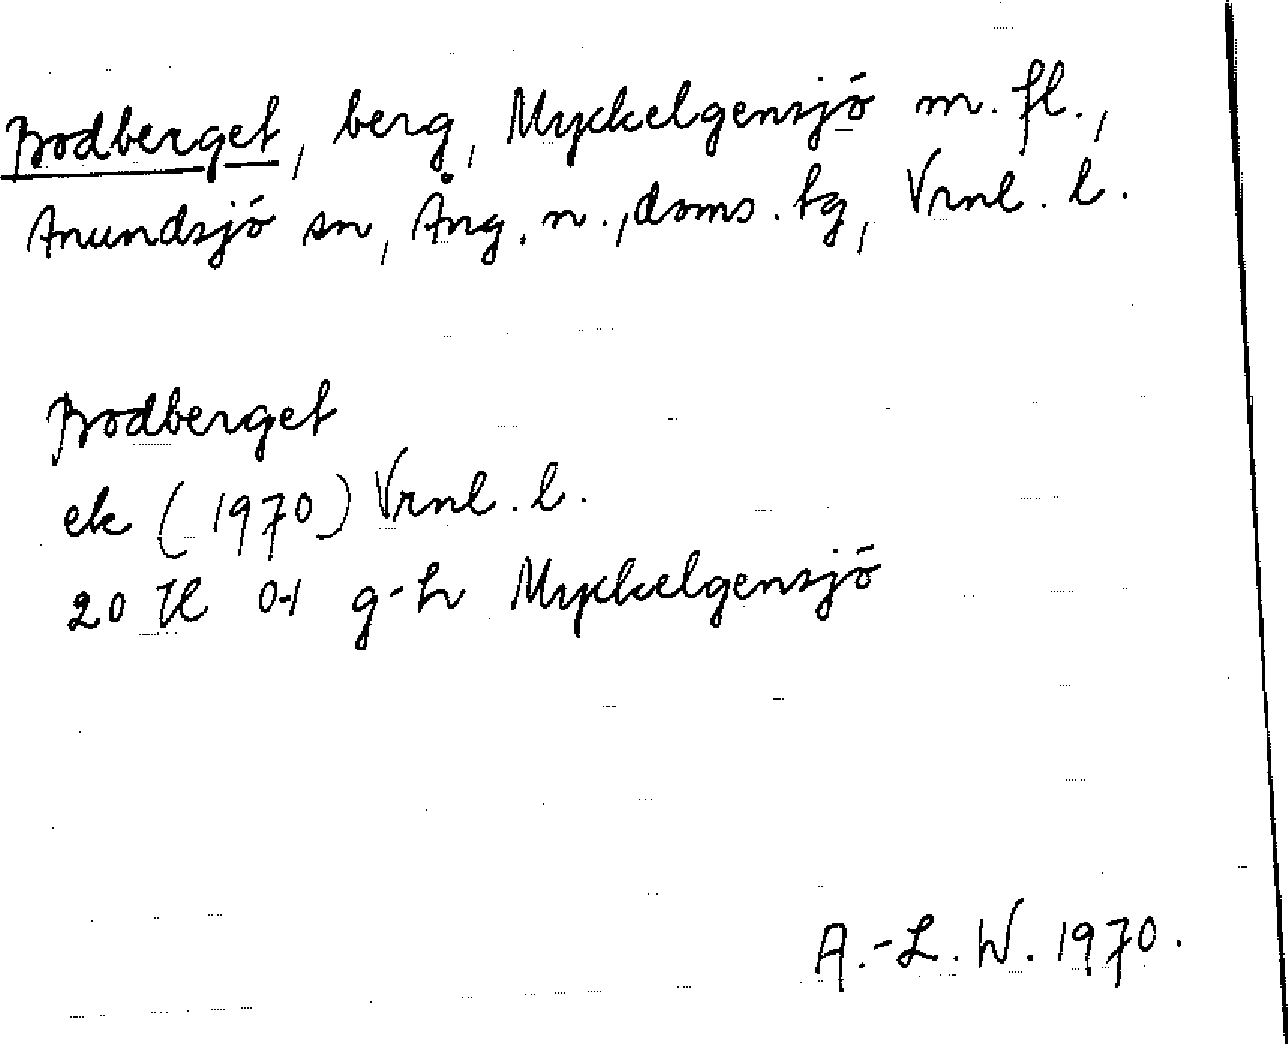 Bodberget, berg, Myckelgensjö m. fl.,
Anundsjö sn, Ång. n., doms. tg, Vrnl. l.
Bodberget
ek (1970) Vrnl. l.
20 H 0-1 g-h Myckelgensjö
A.-L. W. 1970.